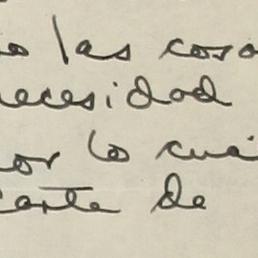 o las cosa
necesidad
por lo cua
carta de